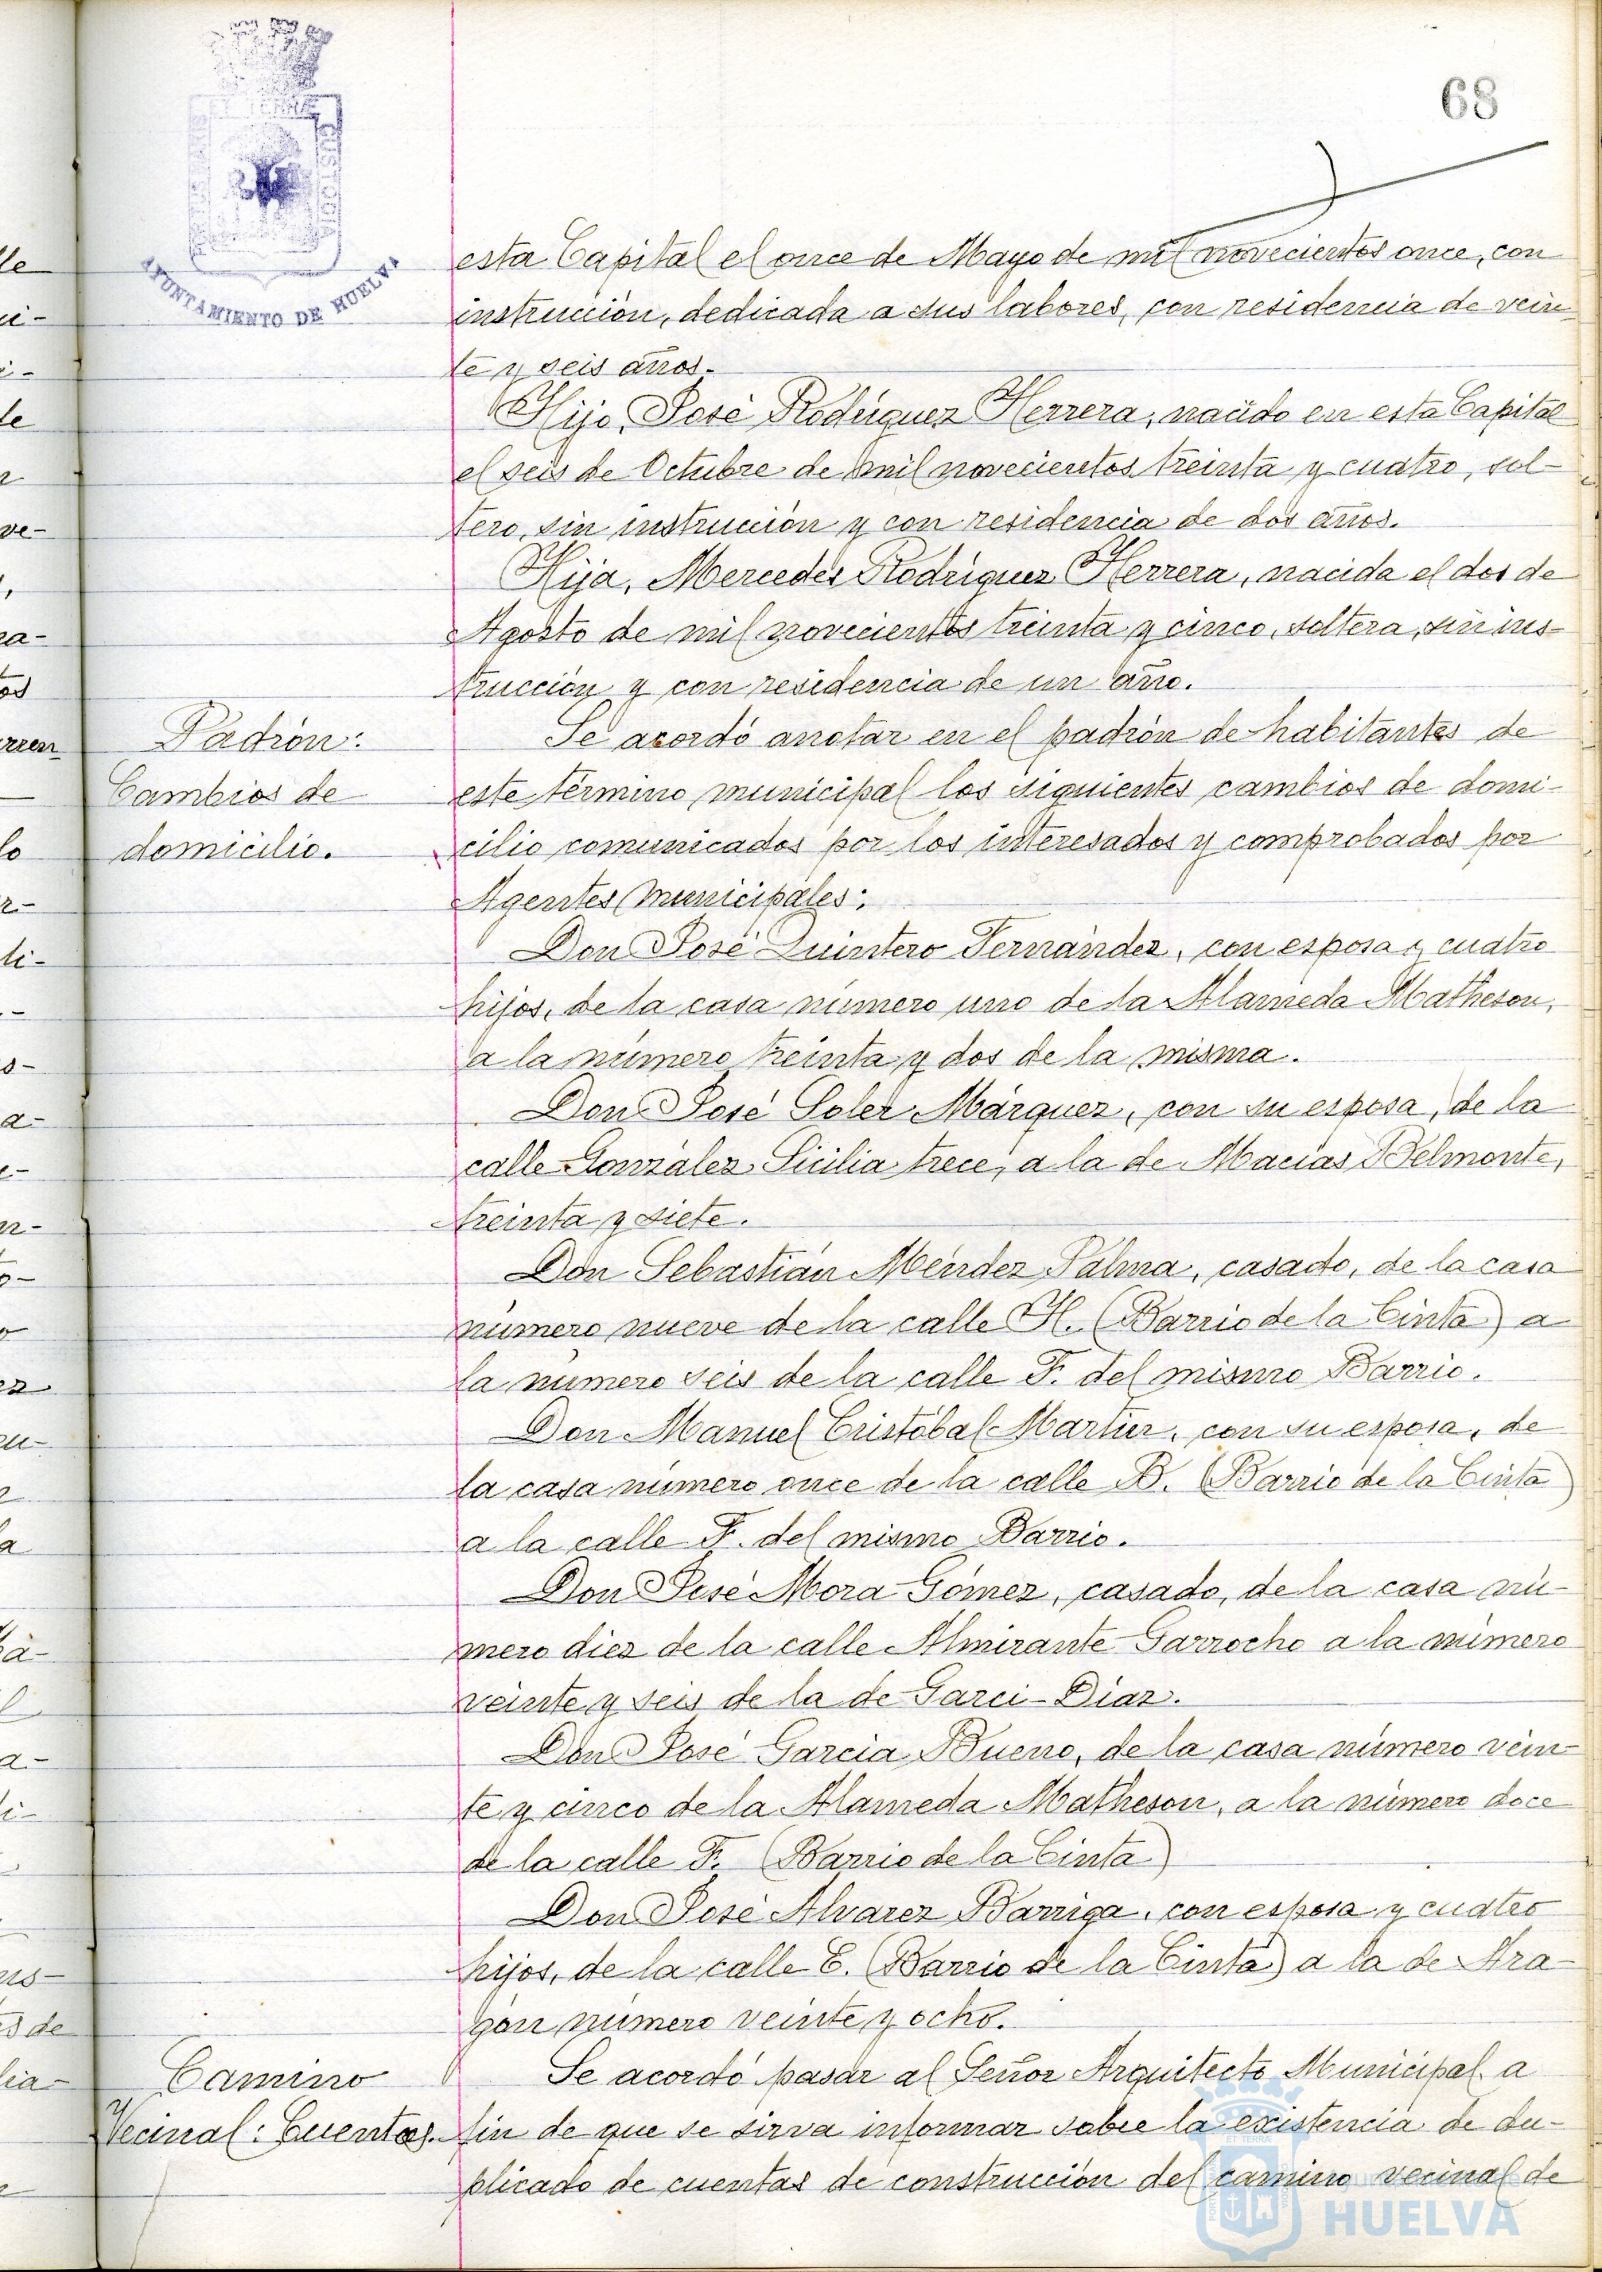 68
AYUNTAMIENTO DE HUELVA
esta Capital el once de Mayo de mil novecientos once, con
instrucción, dedicada a sus labores, con residencia de vein-
te y seis años.
Hijo, José Rodríguez Herrera, nacido en esta Capital
el seis de Octubre de mil novecientos treinta y cuatro, sol-
tero, sin instrucción y con residencia de dos años.
Hija, Mercedes Rodríguez Herrera, nacida el dos de
Agosto de mil novecientos treinta y cinco, soltera, sin ins-
trucción y con residencia de un año.
Padrón:
Cambios de
domicilio.
Se acordó anotar en el padrón de habitantes de
este término municipal los siguientes cambios de domi-
cilio comunicados por los interesados y comprobados por
Agentes municipales:
Don José Quintero Fernández, con esposa y cuatro
hijos, de la casa número uno de la Alameda Matheson,
a la número treinta y dos de la misma.
Don José Soler Márquez, con su esposa, de la
calle González Sicilia trece, a la de Macías Belmonte,
treinta y siete.
Don Sebastián Méndez Palma, casado, de la casa
número nueve de la calle H. (Barrio de la Cinta) a
la número seis de la calle F. del mismo Barrio.
Don Manuel Cristóbal Martín, con su esposa, de
la casa número once de la calle B. (Barrio de la Cinta)
a la calle F. del mismo Barrio.
Don José Mora Gómez, casado, de la casa nú-
mero diez de la calle Almirante Garrocho a la número
veinte y seis de la de Garci-Díaz.
Don José García Bueno, de la casa número vein-
te y cinco de la Alameda Matheson, a la número doce
de la calle F. (Barrio de la Cinta)
Don José Alvarez Barriga, con esposa y cuatro
hijos, de la calle E. (Barrio de la Cinta) a la de Ara-
gón número veinte y ocho.
Camino
Vecinal: Cuentas.
Se acordó pasar al Señor Arquitecto Municipal a
fin de que se sirva informar sobre la existencia de du-
plicado de cuentas de construcción del camino vecinal de
HUELVA